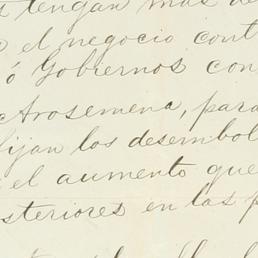 tengan más de
el negocio cont
ó Gobiernos con
Arosemena, para
fijan los desembol
el aumento que
steriores en las p